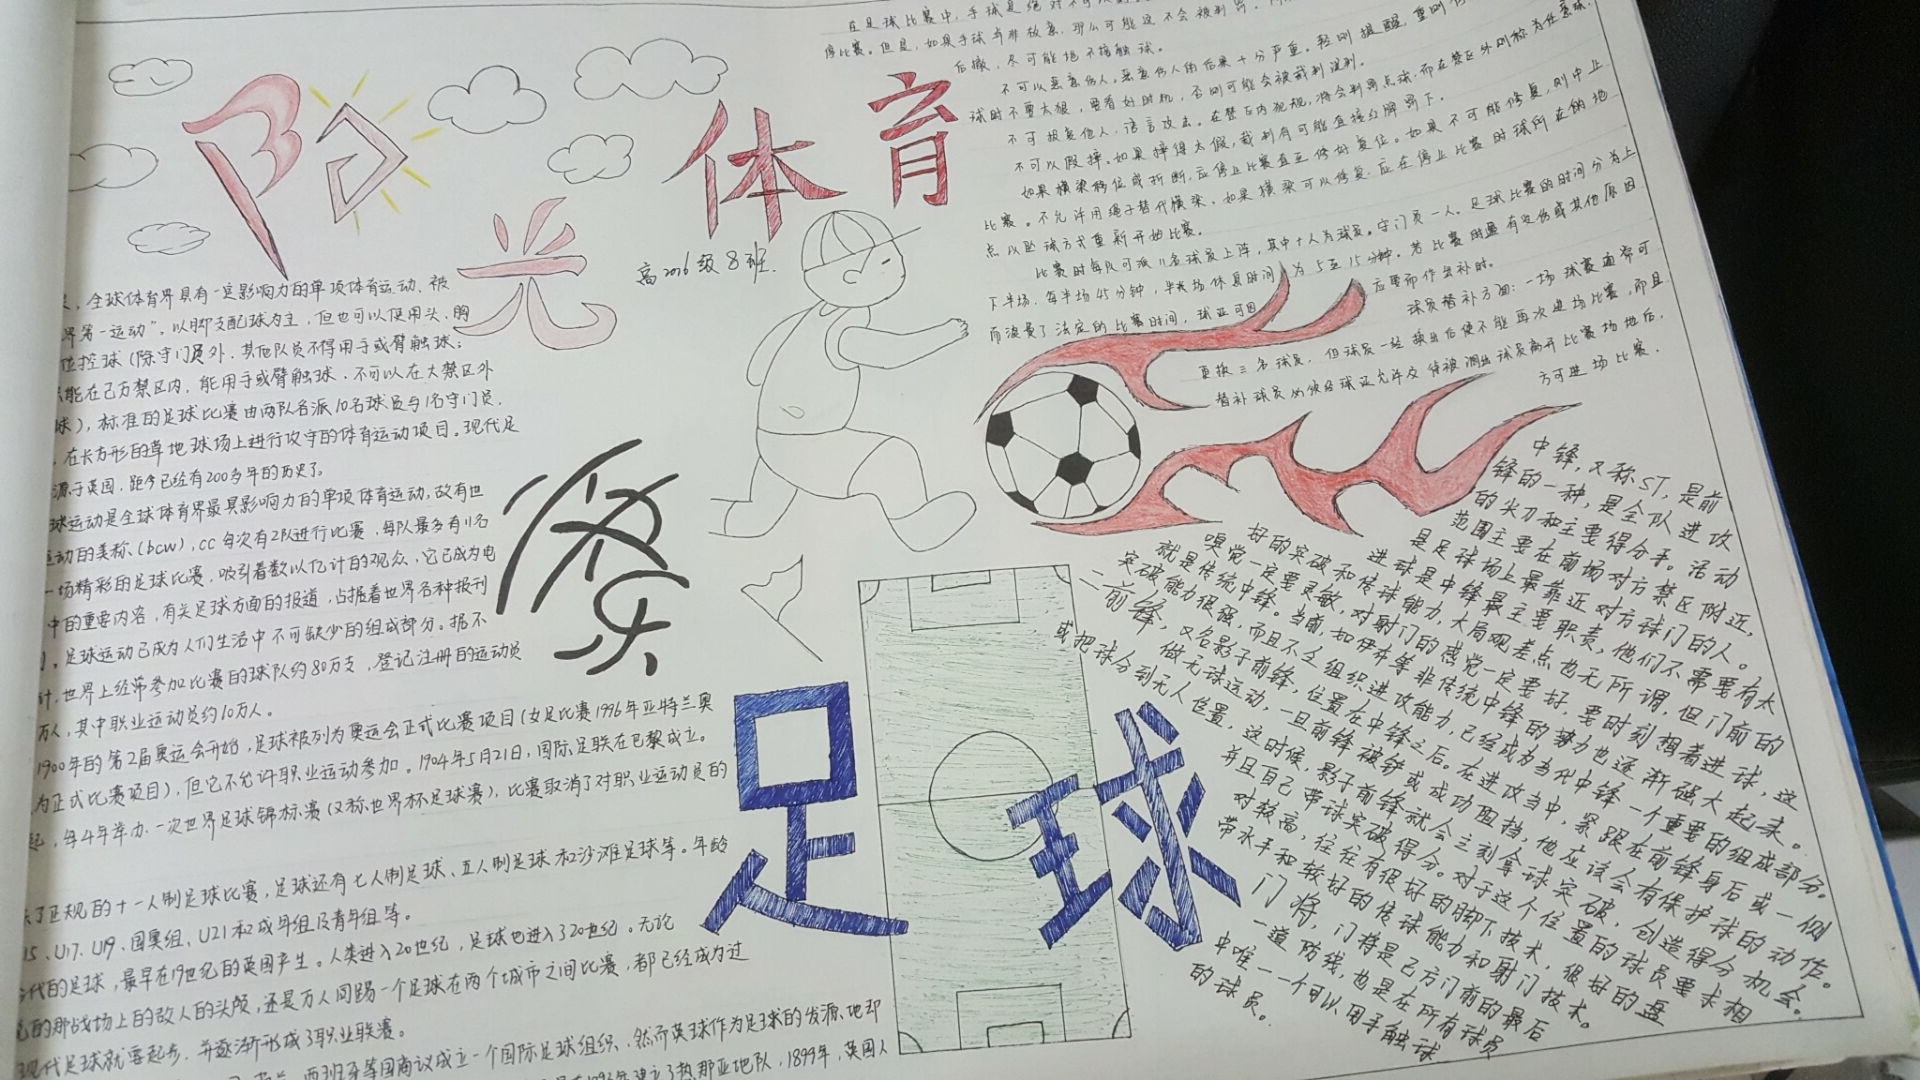 阳光
体育
高2016级8班
爱
足球
全球体育界具有一定影响力的单项体育运动、被
界第一运动”。以脚支配球为主，但也可以使用头、胸
控球（除守门员外，其他队员不得用手或臂触球；
能在己方禁区内，能用手或臂触球．不可以在大禁区外
球），标准的足球比赛由两队各派10名球员与1名守门员，
，在长方形的草地球场上进行攻守的体育运动项目。现代足
源于英国，距今已经有200多年的历史了。
球运动是全球体育界最具影响力的单项体育运动，故有也
运动的美称（bcw），cc每次有2队进行比赛，每队最多有11名
一场精彩的足球比赛，吸引着数以亿计的观众，它已成为电
中的重要内容，有关足球方面的报道，占据着世界各种报刊
。足球运动已成为人们生活中不可缺少的组成部分。据不
计，世界上经常参加比赛的球队约80万支，登记注册的运动员
万人，其中职业运动员约10万人。
1900年的第2届奥运会开始，足球被列为奥运会正式比赛项目（女足比赛1996年亚特兰奥
为正式比赛项目），但它不允许职业运动参加。1904年5月21日，国际足联在巴黎成立。
起，每4年举办一次世界足球锦标赛（又称世界杯足球赛），比赛取消了对职业运动员的
了正规的十一人制足球比赛，足球还有七人制足球、五人制足球和沙滩足球等。年龄
15、U17、U19、国奥组、U21和成年组及青年组等。
代的足球，最早在19世纪的英国产生。人类进入20世纪，足球也进入了20世纪。无论
的那战场上的敌人的头颅，还是万人同踢一个足球在两个城市之间比赛，都已经成为过
现代足球就要起步，并逐渐形成了职业联赛。
西班牙等国商议成立一个国际足球组织，然而英球作为足球的发源地却
年建立了热那亚地队，1899年，英国人
在足球比赛中，手球是绝对不可以的
停比赛。但是，如果手球为非故意，那么可能这不会被判罚
后撤，尽可能地不接触球。
不可以恶意伤人。恶意伤人的后果十分严重。轻则提醒，重则
球时不要太狠，要看好时机，否则可能会被裁判误判。
不可报复他人，语言攻击。在禁区内犯规，将会判罚点球，而在禁区外则称为任意球．
不可以假摔。如果摔得太假，裁判有可能直接红牌罚下。
如果横梁移位或折断，应停止比赛直至修好复位。如果不可能修复，则中止
比赛。不允许用绳子替代横梁。如果横梁可以修复，应在停止比赛时球所在的地
点以坠球方式重新开始比赛。
比赛时每队可派11名球员上阵，其中十人为球员。守门员一人。足球比赛的时间分为上
下半场，每半场45分钟，半场休息时间为5至15分钟。若比赛时遭有受伤或其他原因
而浪费了法定的比赛时间，球证可因应要而作出补时。
球员替补方面：一场球赛通常可
更换三名球员，但球员一经换出后便不能再次进场比赛，而且
替补球员必须给球证允许及待被调出球员离开比赛场地后，
方可进场比赛．
中锋，又称ST，是前
锋的一种，是全队进攻
的尖刀和主要得分手。活动
范围主要在前场对方禁区附近，
是足球场上最靠近对方球门的人。
进球是中锋最主要职责，他们不需要有太
好的突破和传球能力，大局观差点也无所谓，但门前的
嗅觉一定要灵敏，对射门的感觉一定要好，要时刻想着进球，这
就是传统中锋。当前，如伊布等非传统中锋的势力也逐渐强大起来。
突破能力很强，而且不乏组织进攻能力，已经成为当代中锋一个重要的组成部分。
二前锋，又名影子前锋，位置在中锋之后。在进攻当中，紧跟在前锋身后或一侧
做无球运动，一旦前锋被铲或成功阻挡，他应该会有保护球的动作。
或把球分到无人位置，这时候，影子前锋就会立刻拿球突破，创造得分机会。
并且自己带球突破得分。对于这个位置的球员要求相
对较高，往往有很好的脚下技术，很好的盘
带水平和较好的传球能力和射门技术。
门将，门将是己方门前的最后
一道防线，也是在所有球员
中唯一一个可以用手触球
的球员。